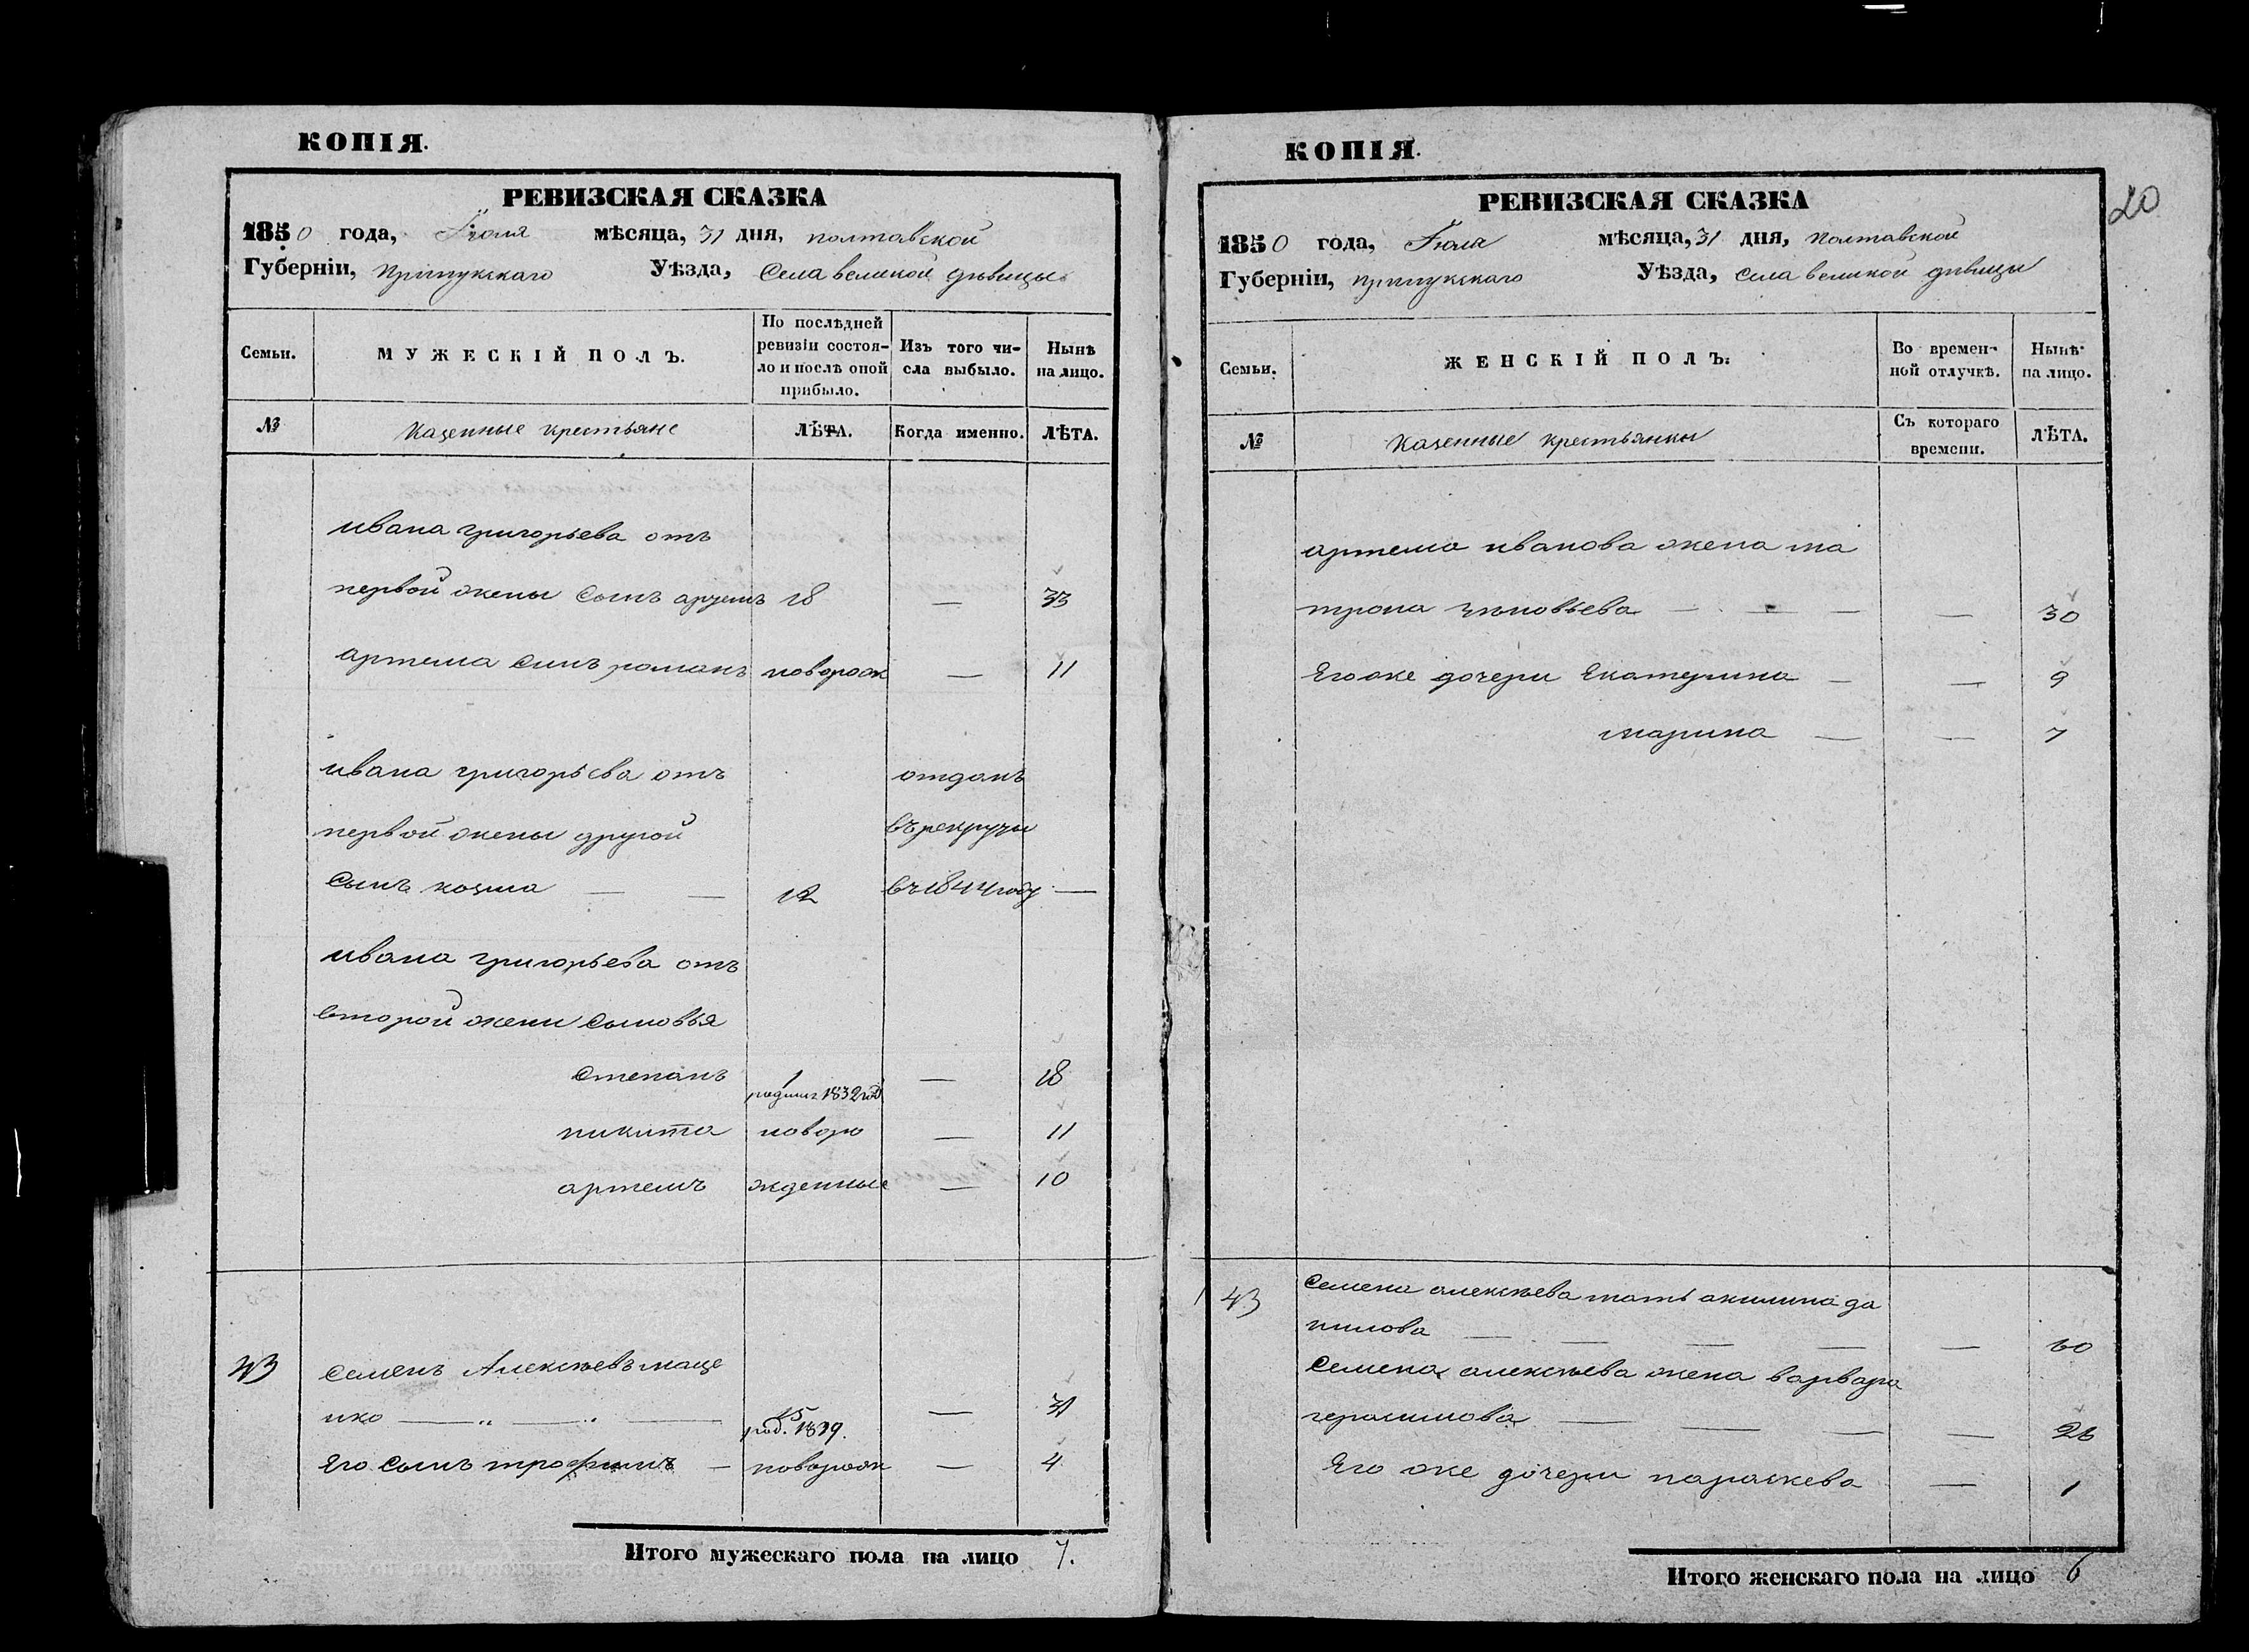 КОПІЯ.
РЕВИЗСКАЯ СКАЗКА
1850 года, Іюля мѣсяца, 31 дня, полтавской
Губерніи, прилукскаго Уѣзда, Села великой дѣвицы
Семьи.
МУЖЕСКІЙ ПОЛЪ.
По послѣдней
ревизіи состоя-
ло и послѣ оной
прибыло.
Изъ того чи-
сла выбыло.
Нынѣ
на лицо.
№
Казенные крестьяне
ЛѢТА.
Когда именно.
ЛѢТА.
ивана григорьева отъ
первой жены Сынъ артемъ 18 — 33
артема Сынъ романъ новорож — 11
ивана григорьева отъ отданъ
первой жены другой въ рекруты
Сынъ козма — — 12 въ 1844 году —
ивана григорьева отъ
второй жены Сыновья
Степанъ 1 — 18
родился 1832 год
никита новоро — 11
артемъ жденные — 10
43 Семенъ Алексѣевъ маце
нко — " — " — 15 — 31
род. 1819.
Его Сынъ трофимъ — новорож — 4
Итого мужескаго пола на лицо 7.
КОПІЯ.
20
РЕВИЗСКАЯ СКАЗКА
1850 года, Іюля мѣсяца, 31 дня, полтавской
Губерніи, прилукскаго Уѣзда, Села великой дѣвицы
Семьи.
ЖЕНСКІЙ ПОЛЪ.
Во времен-
ной отлучкѣ.
Нынѣ
на лицо.
№
Казенные крестьянки
Съ котораго
времени.
ЛѢТА.
артема иванова жена ма
трона зѣновьева — — — — 30
Его же дочери Екатерина — — 9
марина — — 7
43 Семена алексѣева мать акилина да
нилова — — — — — 60
Семена алексѣева жена варвара
герасимова — — — — 26
Его же дочери параскева — 1
Итого женскаго пола на лицо 6